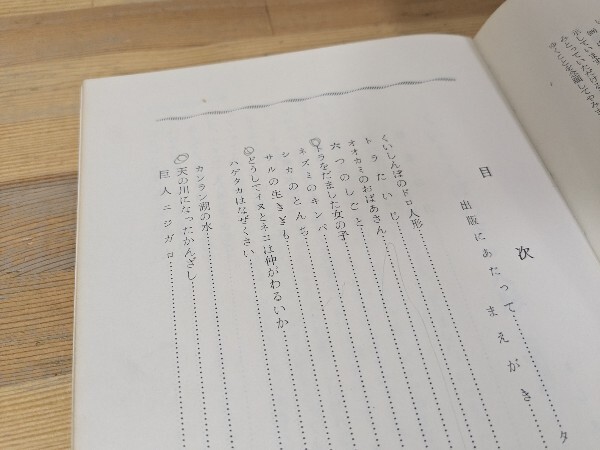 目次
出版にあたって
まえがき
くいしんぼのドロ人形
トラたいじ
オオカミのおばあさん
六つのしごと
トラをだました女の子
ネズミのキンバ
シカのとんち
サルの生きぎも
どうしてイヌとネコは仲がわるいか
ハゲタカはなぜくさい
カンラン湖の水
天の川になったかんざし
巨人ニジガロ